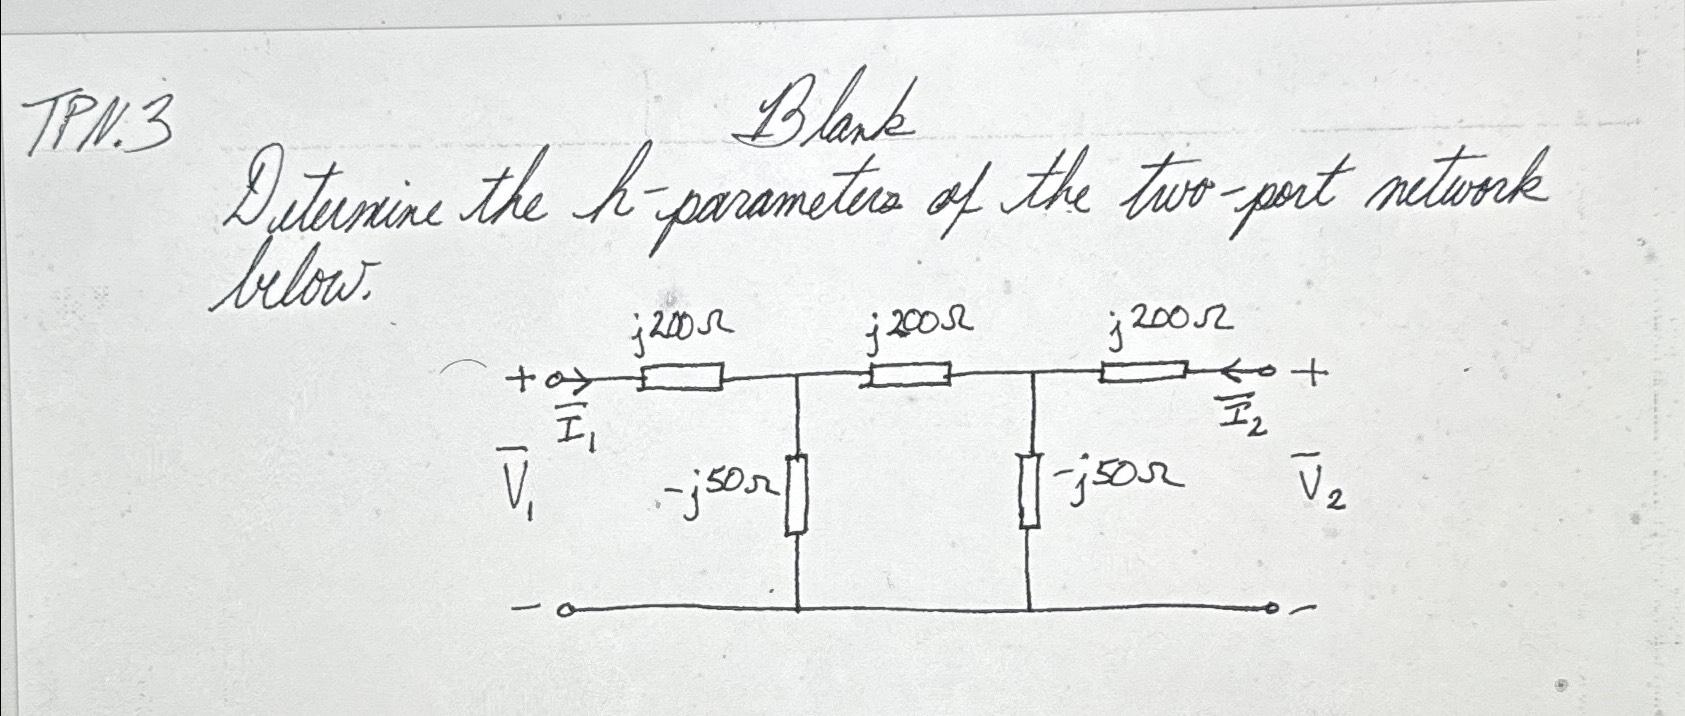 TPN.3
Blank
Determine the h-parameters of the two-port network
below.
j200Ω j200Ω j200Ω
+ +
I̅₁ I̅₂
V̅₁ -j50Ω -j50Ω V̅₂
- -